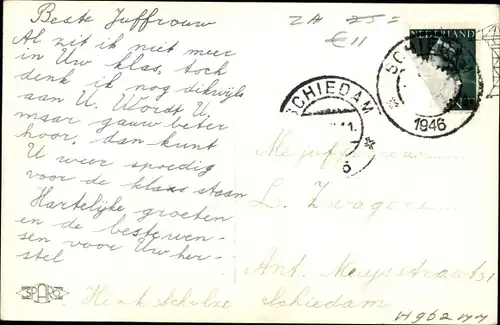 Beste Juffrouw
Al zit ik niet meer
in Uw klas, toch
denk ik nog dikwijls
aan U. Wordt U.
maar gauw beter
hoor, dan kunt
U weer spoedig
voor de klas staan
Hartelijke groeten
en de beste wen-
sen voor Uw her-
stel
Henk Scholze
SPARO
ZH 25=
€11
NEDERLAND
SCHIEDAM
1946
SCHIEDAM
Mejuffrouw
L. Zwagers
Ant. Muysstraat 51
Schiedam
H96277